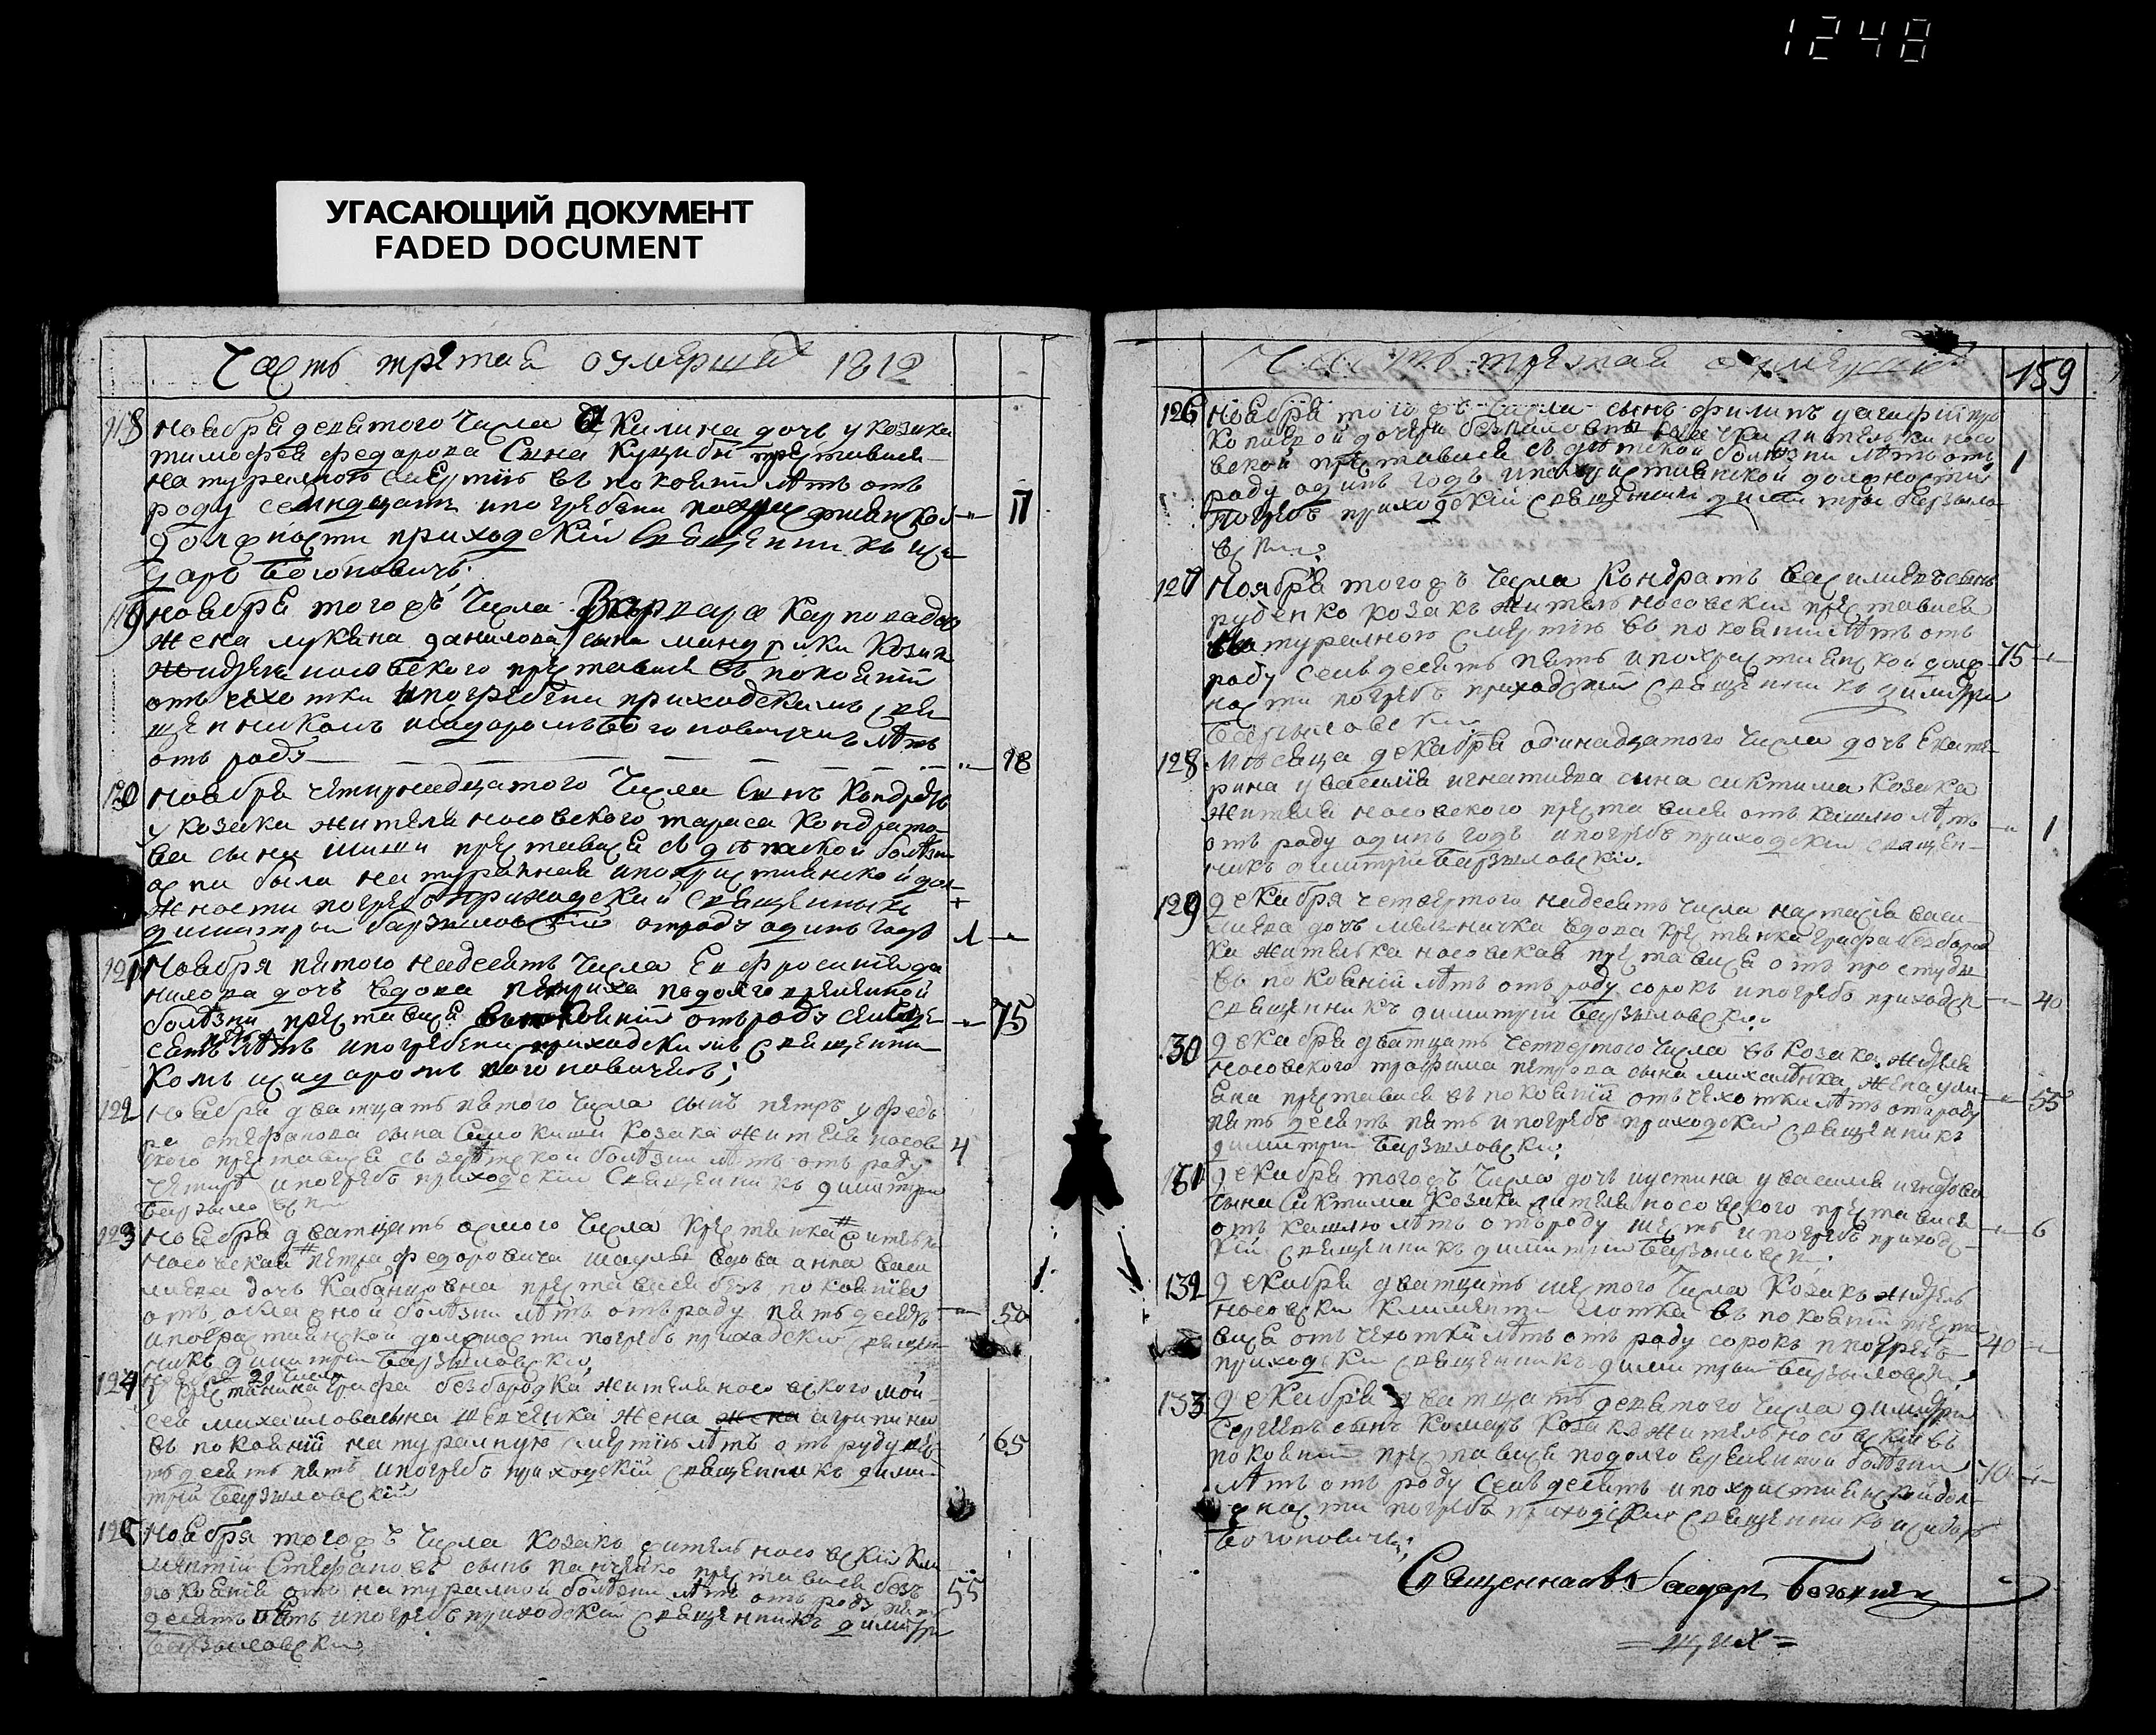 1248
УГАСАЮЩИЙ ДОКУМЕНТ
FADED DOCUMENT
Часть третая о умерших 1812
118 ноября девятого числа Акилина дочь у козака
тимофея федорова сына Куцибы преставися
натуралною смертию въ покаянии лѣтъ отъ
роду семнадцать и погребена по христианской 17
должности приходский священникъ
Богоповичъ
119 ноября того жъ числа Варвара Карпова доч
жена лукяна данилова сына мандрики Козака
жителя носовского преставися въ покаянии
отъ чехотки и погребена приходскимъ свя
щенникомъ исидоромъ Богоповичемъ лѣтъ
отъ роду 28
120 ноября четирнадцатого числа Сынъ Кондратъ
у козака жителя носовского тараса Кондрато
ва сына шиши преставися съ дѣтской болѣзни
оспи была натуралная и по християнской дол
жности погребъ приходский священникъ
димитрий барзиловский отроду одинъ годъ 1
121 Ноября пятого надесять числа Ефросиния да
нилова дочь вдова по долговременной
болѣзни преставися въ покаянии отъ роду семде 75
сятъ пять лѣтъ и погребена приходскимъ священни
комъ исидоромъ богоповичемъ;
122 ноября дватцать пятого числа сынъ петръ у федо
ра стефанова сына Самокиши Козака жителя носов 4
ского преставися съ дѣтской болѣзни лѣтъ отъ роду
четире и погребъ приходский священникъ димитрий
Барзиловски
123 ноября дватцать осмого числа крестянка жителька
носовская петра федоровича шаулы вдова анна васи
лиева дочь Кабанцовна преставися безъ покаяния
отъ болѣзни лѣтъ отъ роду пятьдесятъ 50
и по християнской должности погребъ приходский священ
никъ димитрий Барзиловский
124 29 числа
крестянина Графа безбородка жителя носовского мой
сея михайлова сына жена агрипина
въ покаянии натуралную смертию лѣтъ отъ роду 65
десять пять и погребъ приходский священникъ дими
трий Барзиловский
125 Ноября того жъ числа козакъ житель носовский Кли
ментий Стефановъ сынъ преставися безъ
покаяния отъ натуралной болѣзни лѣтъ отъ роду пять 55
десятъ пять и погребъ приходский священникъ димитрий
Барзиловски
Часть третая о умерших 159
126 Ноября того жъ числа сынъ филипъ у агафии про
копиевой дочери жительки носо
вской преставися съ дѣтской болѣзни лѣтъ отъ 1
роду одинъ годъ и по християнской должности
погребъ приходский священникъ димитрий барзило
вски
127 Ноября того жъ числа Кондратъ василиевъ сынъ
руденко козакъ житель носовский преставися
натуралною смертию въ покаянии лѣтъ отъ
роду семдесятъ пять и по християнской долж 75
ности погребъ приходский священникъ димитри
Барзиловски
128 Мѣсяца декабря одинадцатого числа дочь Екате
рина у василия игнатиева сына сиктима козака
жителя носовского преставися отъ кашлю лѣтъ
отъ роду одинъ годъ и погребъ приходский священ 1
никъ димитрий Барзиловский.
129 декабря четвертого надесять числа настасия васи
лиева дочь вдова крестянка Графа безбород
ки жителька носовская преставися отъ простуды
въ покаянии лѣтъ отъ роду сорокъ и погребъ приходск 40
священникъ димитрий Барзиловски
130 декабря дватцать четвертого числа въ козака жителя
носовского трофима петрова сына михаленка жена ули
яна преставися въ покаянии отъ чехотки лѣтъ отъ роду 55
пять десятъ пять и погребъ приходский священникъ
димитрий Барзиловски;
131 декабря того жъ числа дочь иустина у василия игнатова
сына Сиктима Козака жителя носовского преставися
отъ кашлю лѣтъ отъ роду шесть и погребъ приходс 6
кий священникъ димитрий Барзиловски
132 декабря дватцать шестого числа Козакъ житель
носовски Климентий въ покаянии преста
вися отъ чехотки лѣтъ отъ роду сорокъ и погребъ 40
приходски священникъ димитрий Барзиловски
133 декабря дватцать девятого числа димитри
Сергиевъ сынъ Комаръ Козакъ житель носовский въ
покаянии преставися по долго временной болѣзни
лѣтъ отъ роду семдесятъ и по християнской дол 70
жности погребъ приходский священникъ исидоръ
Богоповичъ;
Священникъ